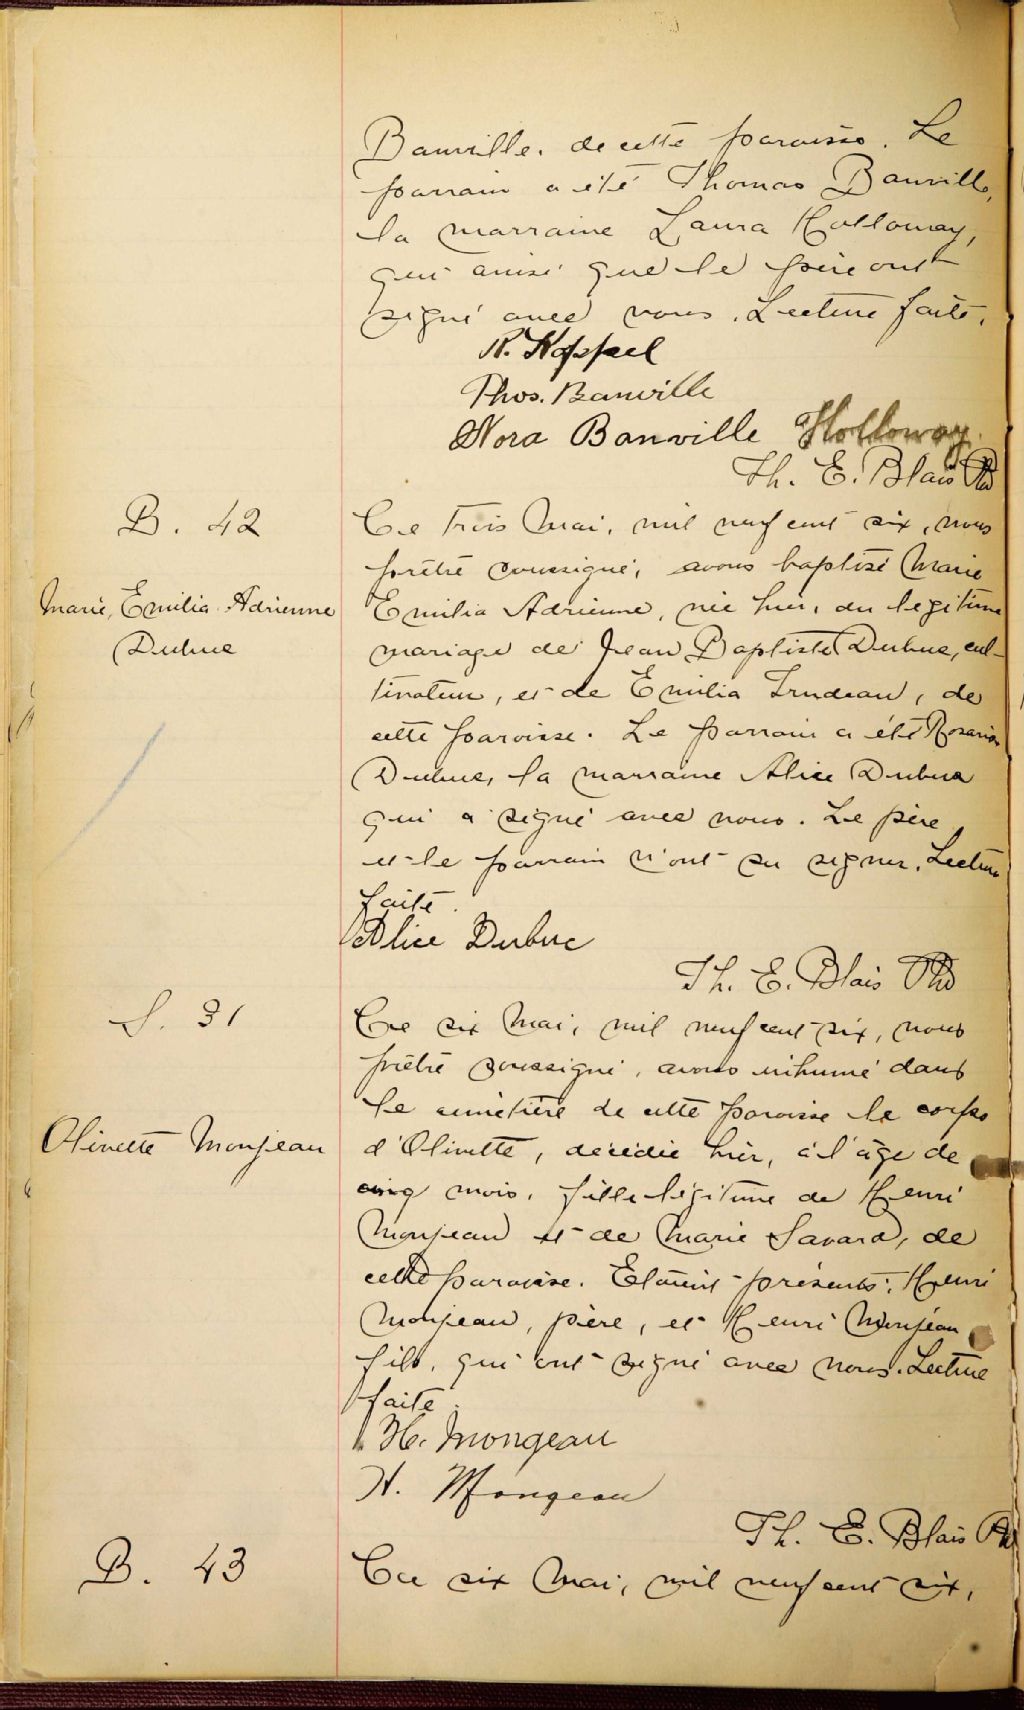 Banville, de cette paroisse. Le
parrain a été Thomas Banville,
la marraine Laura Holloway,
qui ainsi que le père ont
signé avec nous. Lecture faite.
R. Koppel
Thos. Banville
Nora Banville Holloway
Th. E. Blais Ptre
B. 42
Marie, Emilia Adrienne
Dubuc
Ce trois Mai, mil neuf cent six, nous
prêtre soussigné, avons baptisé Marie
Emilia Adrienne, née hier, du légitime
mariage de Jean Baptiste Dubuc, cul-
tivateur, et de Emilia Trudeau, de
cette paroisse. Le parrain a été Rosario
Dubuc, la marraine Alice Dubuc
qui a signé avec nous. Le père
et le parrain n'ont su signer. Lecture
faite.
Alice Dubuc
Th. E. Blais Ptre
S. 31
Olivette Monjeau
Ce six Mai, mil neuf cent six, nous
prêtre soussigné, avons inhumé dans
le cimetière de cette paroisse le corps
d'Olivette, décédée hier, à l'âge de
cinq mois, fille légitime de Henri
Monjeau et de Marie Savard, de
cette paroisse. Etaient présents: Henri
Monjeau, père, et Henri Monjeau
fils, qui ont signé avec nous. Lecture
faite.
H. Mongeau
H. Mongeau
Th. E. Blais Ptre
B. 43
Ce six Mai, mil neuf cent six,